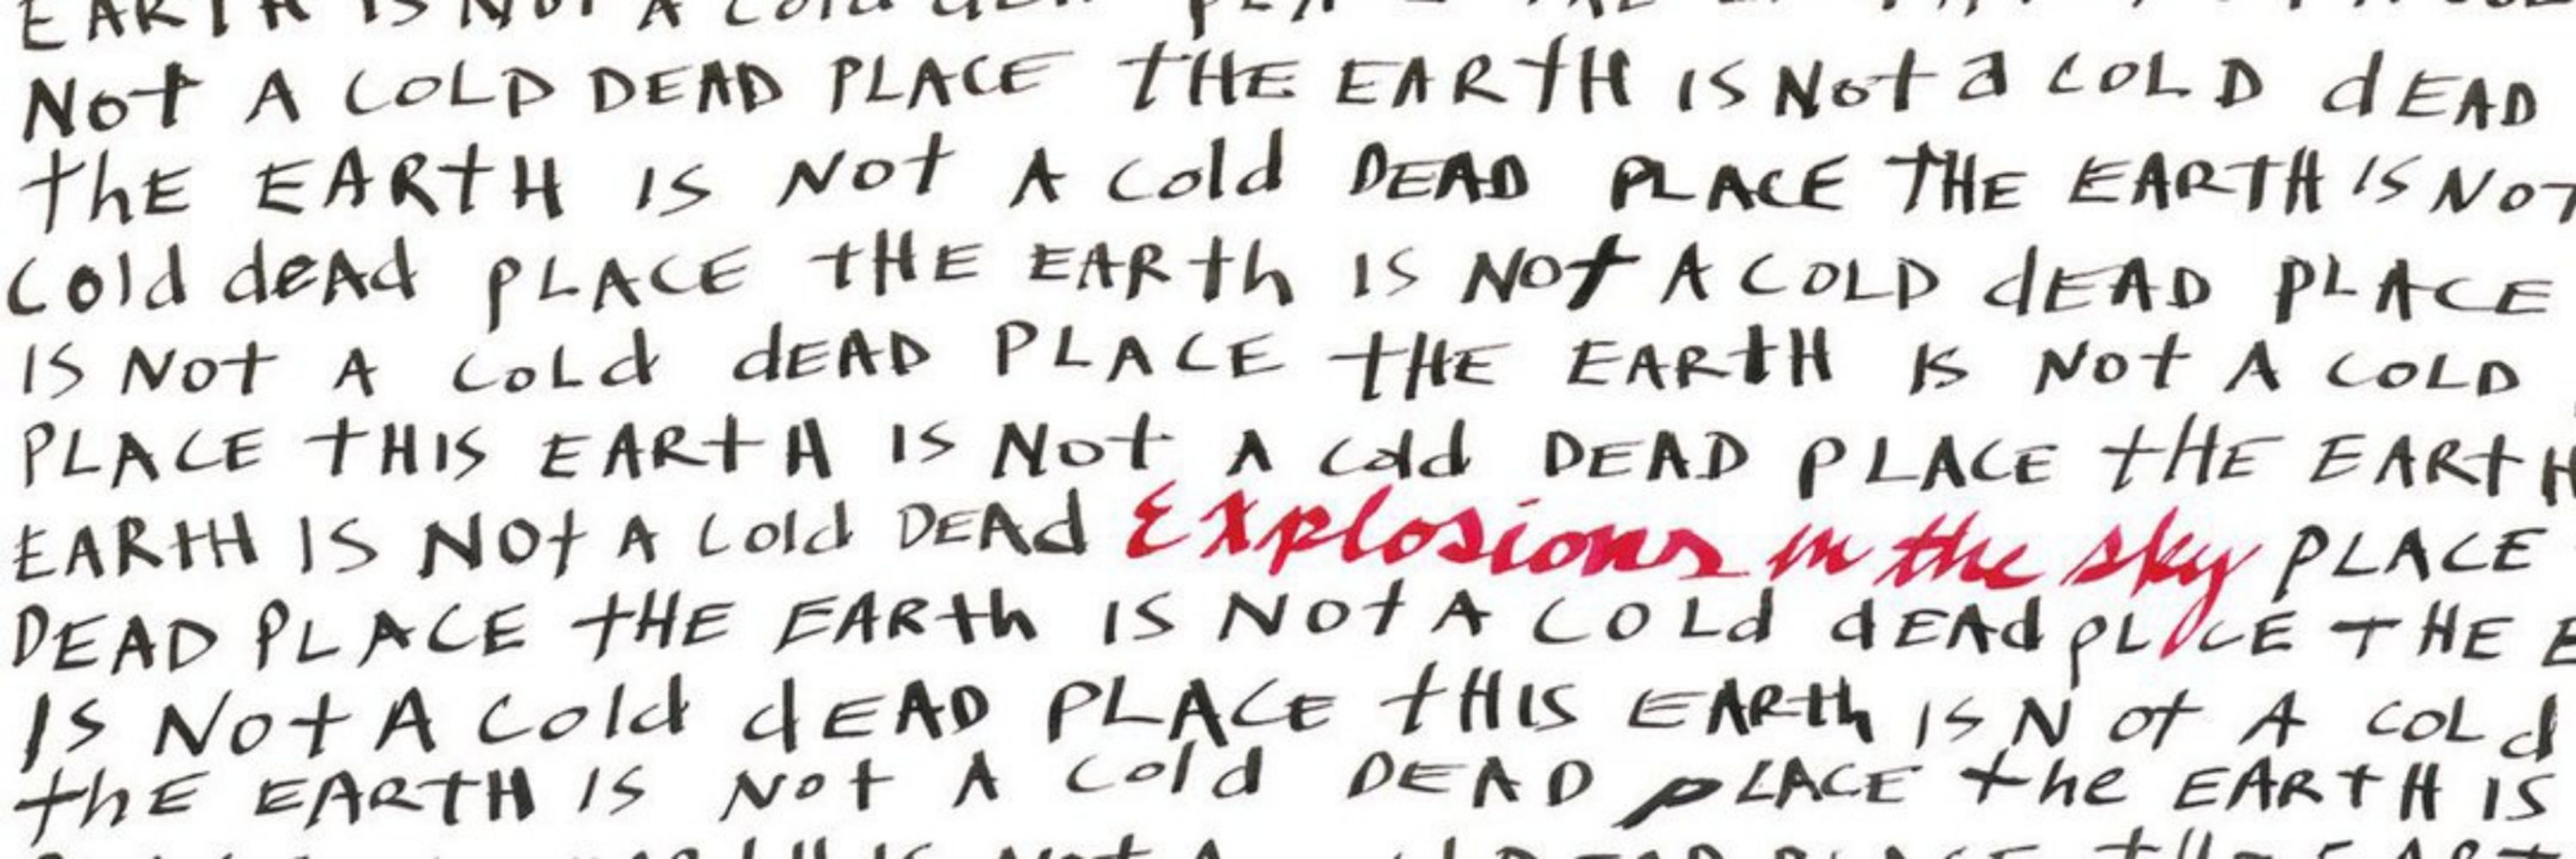 EARTH IS NOT A COLD
NOT A COLD DEAD PLACE THE EARTH IS NOT a COLD dEAD
thE EARTH IS NOT A cold DEAD PLACE THE EARTH IS NOT
cold deAd PLACE tHE EARth IS NOT A COLD dEAD PLACE
IS NOt A coLd dEAD PLACE tHE EARtH IS NOt A COLD
PLACE tHIS EARtH IS NOt A cold DEAD PLACE tHE EARtH
EARtH IS NOt A cold DEAd Explosions in the sky PLACE
DEAD PLACE tHE EARth IS NOt A COLd dEAd pLACE THE E
IS NOt A cold dEAD PLACE tHIS EARth IS NOt A COLd
thE EARTH IS NOt A cold DEAD pLACE the EARtH IS